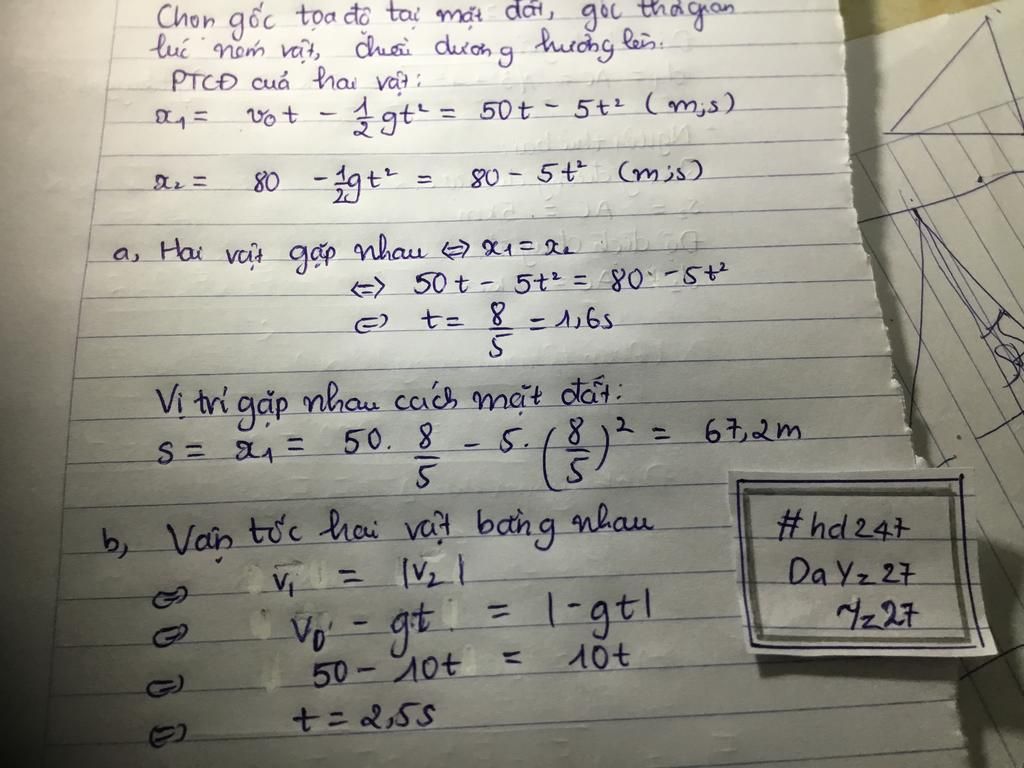 Chọn gốc tọa độ tại mặt đất, gốc thời gian
lúc ném vật, chiều dương hướng lên.
PTCĐ của hai vật:
x₁ = v₀t - 1/2 gt² = 50t - 5t² (m;s)
x₂ = 80 - 1/2 gt² = 80 - 5t² (m;s)
a, Hai vật gặp nhau ⇔ x₁ = x₂
⇔ 50t - 5t² = 80 - 5t²
⇔ t = 8/5 = 1,6s
Vị trí gặp nhau cách mặt đất:
s = x₁ = 50. 8/5 - 5. (8/5)² = 67,2m
b, Vận tốc hai vật bằng nhau
⇔ v₁ = |v₂|
⇔ v₀ - gt = |-gt|
⇔ 50 - 10t = 10t
⇔ t = 2,5s
#hd247
DaYz27
Yz27